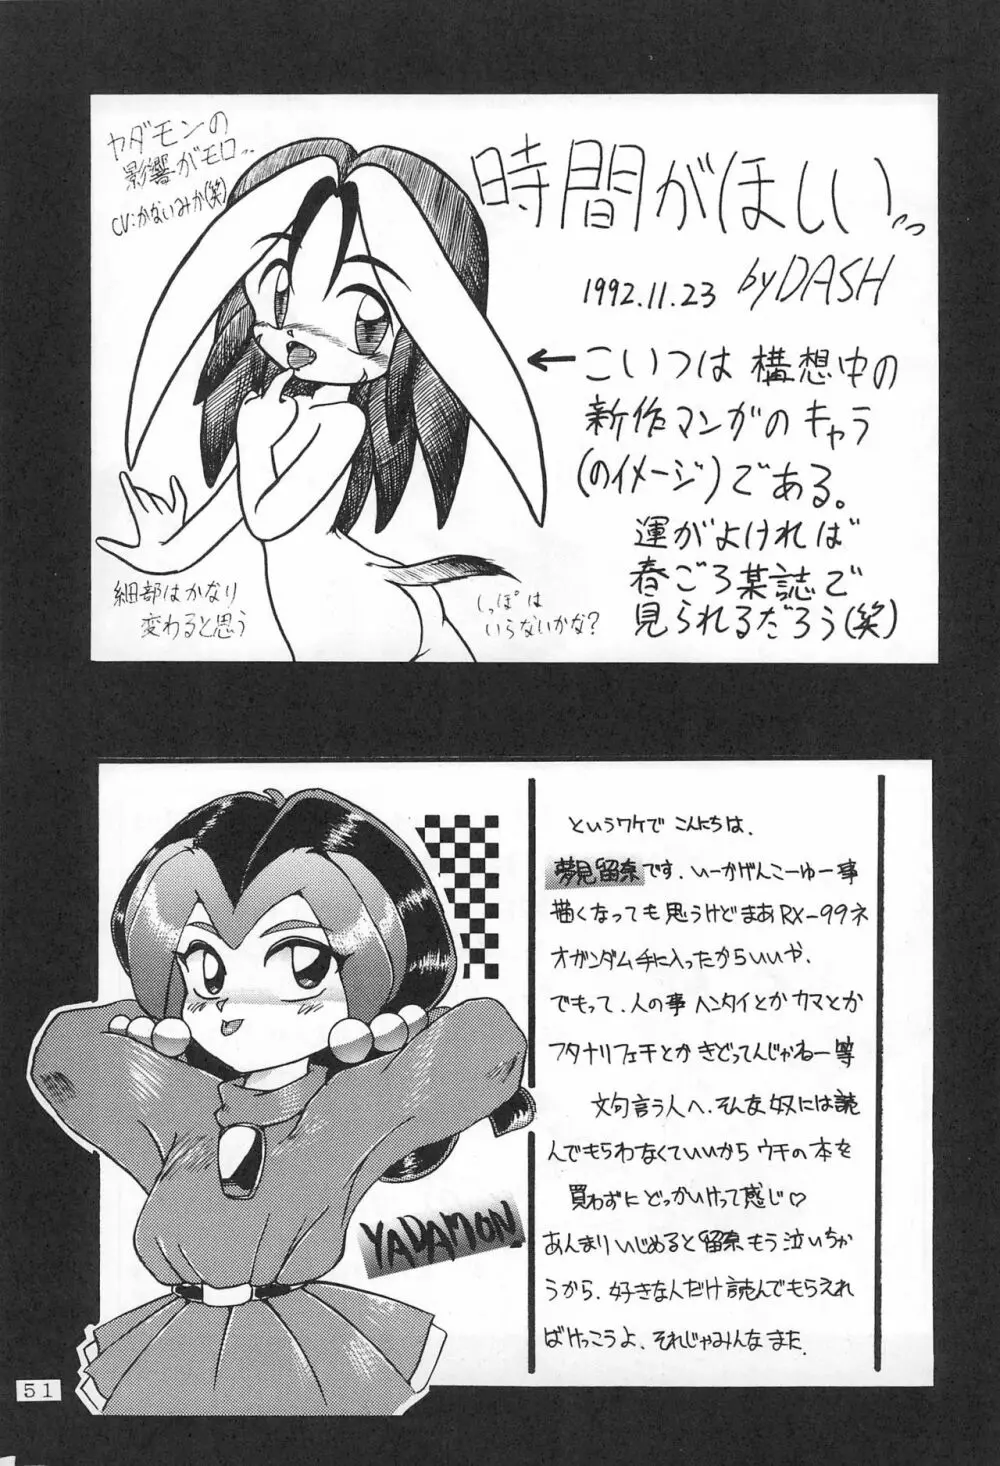 ヤダモンの
影響がモロ…
CV:かないみか(笑)
時間がほしい…
1992.11.23 by DASH
←こいつは構想中の
新作マンガのキャラ
(のイメージ)である。
運がよければ
春ごろ某誌で
見られるだろう(笑)
細部はかなり
変わると思う
しっぽは
いらないかな?
というワケで こんにちは、
夢見留奈です、いーかげんこーゆー事
描くなっても思うけどまあRX-99ネ
オガンダム手に入ったからいいや、
でもって、人の事ヘンタイとかカマとか
フタナリフェチとか きどってんじゃねー等
文句言う人へ、そんな奴には読
んでもらわなくていいから ウチの本を
買わずに どっかいけって感じ♡
あんまりいじめると留奈もう泣いちゃ
うから、好きな人だけ読んでもらえれ
ばけっこうよ、それじゃみんなまた
YADAMON
51